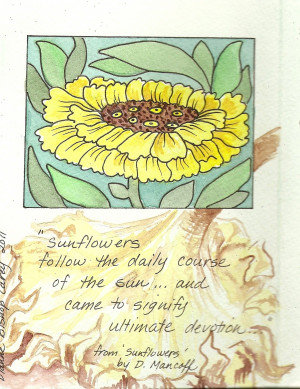 "Sunflowers
follow the daily course
of the sun... and
came to signify
ultimate devotion...
from 'Sunflowers
by D. Mancoff
Dianne Bishop Carey 2011